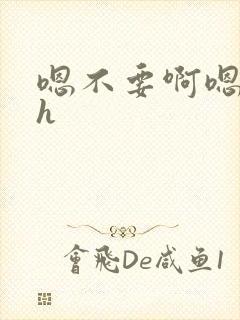 嗯不要啊嗯
h
會飛De咸鱼1